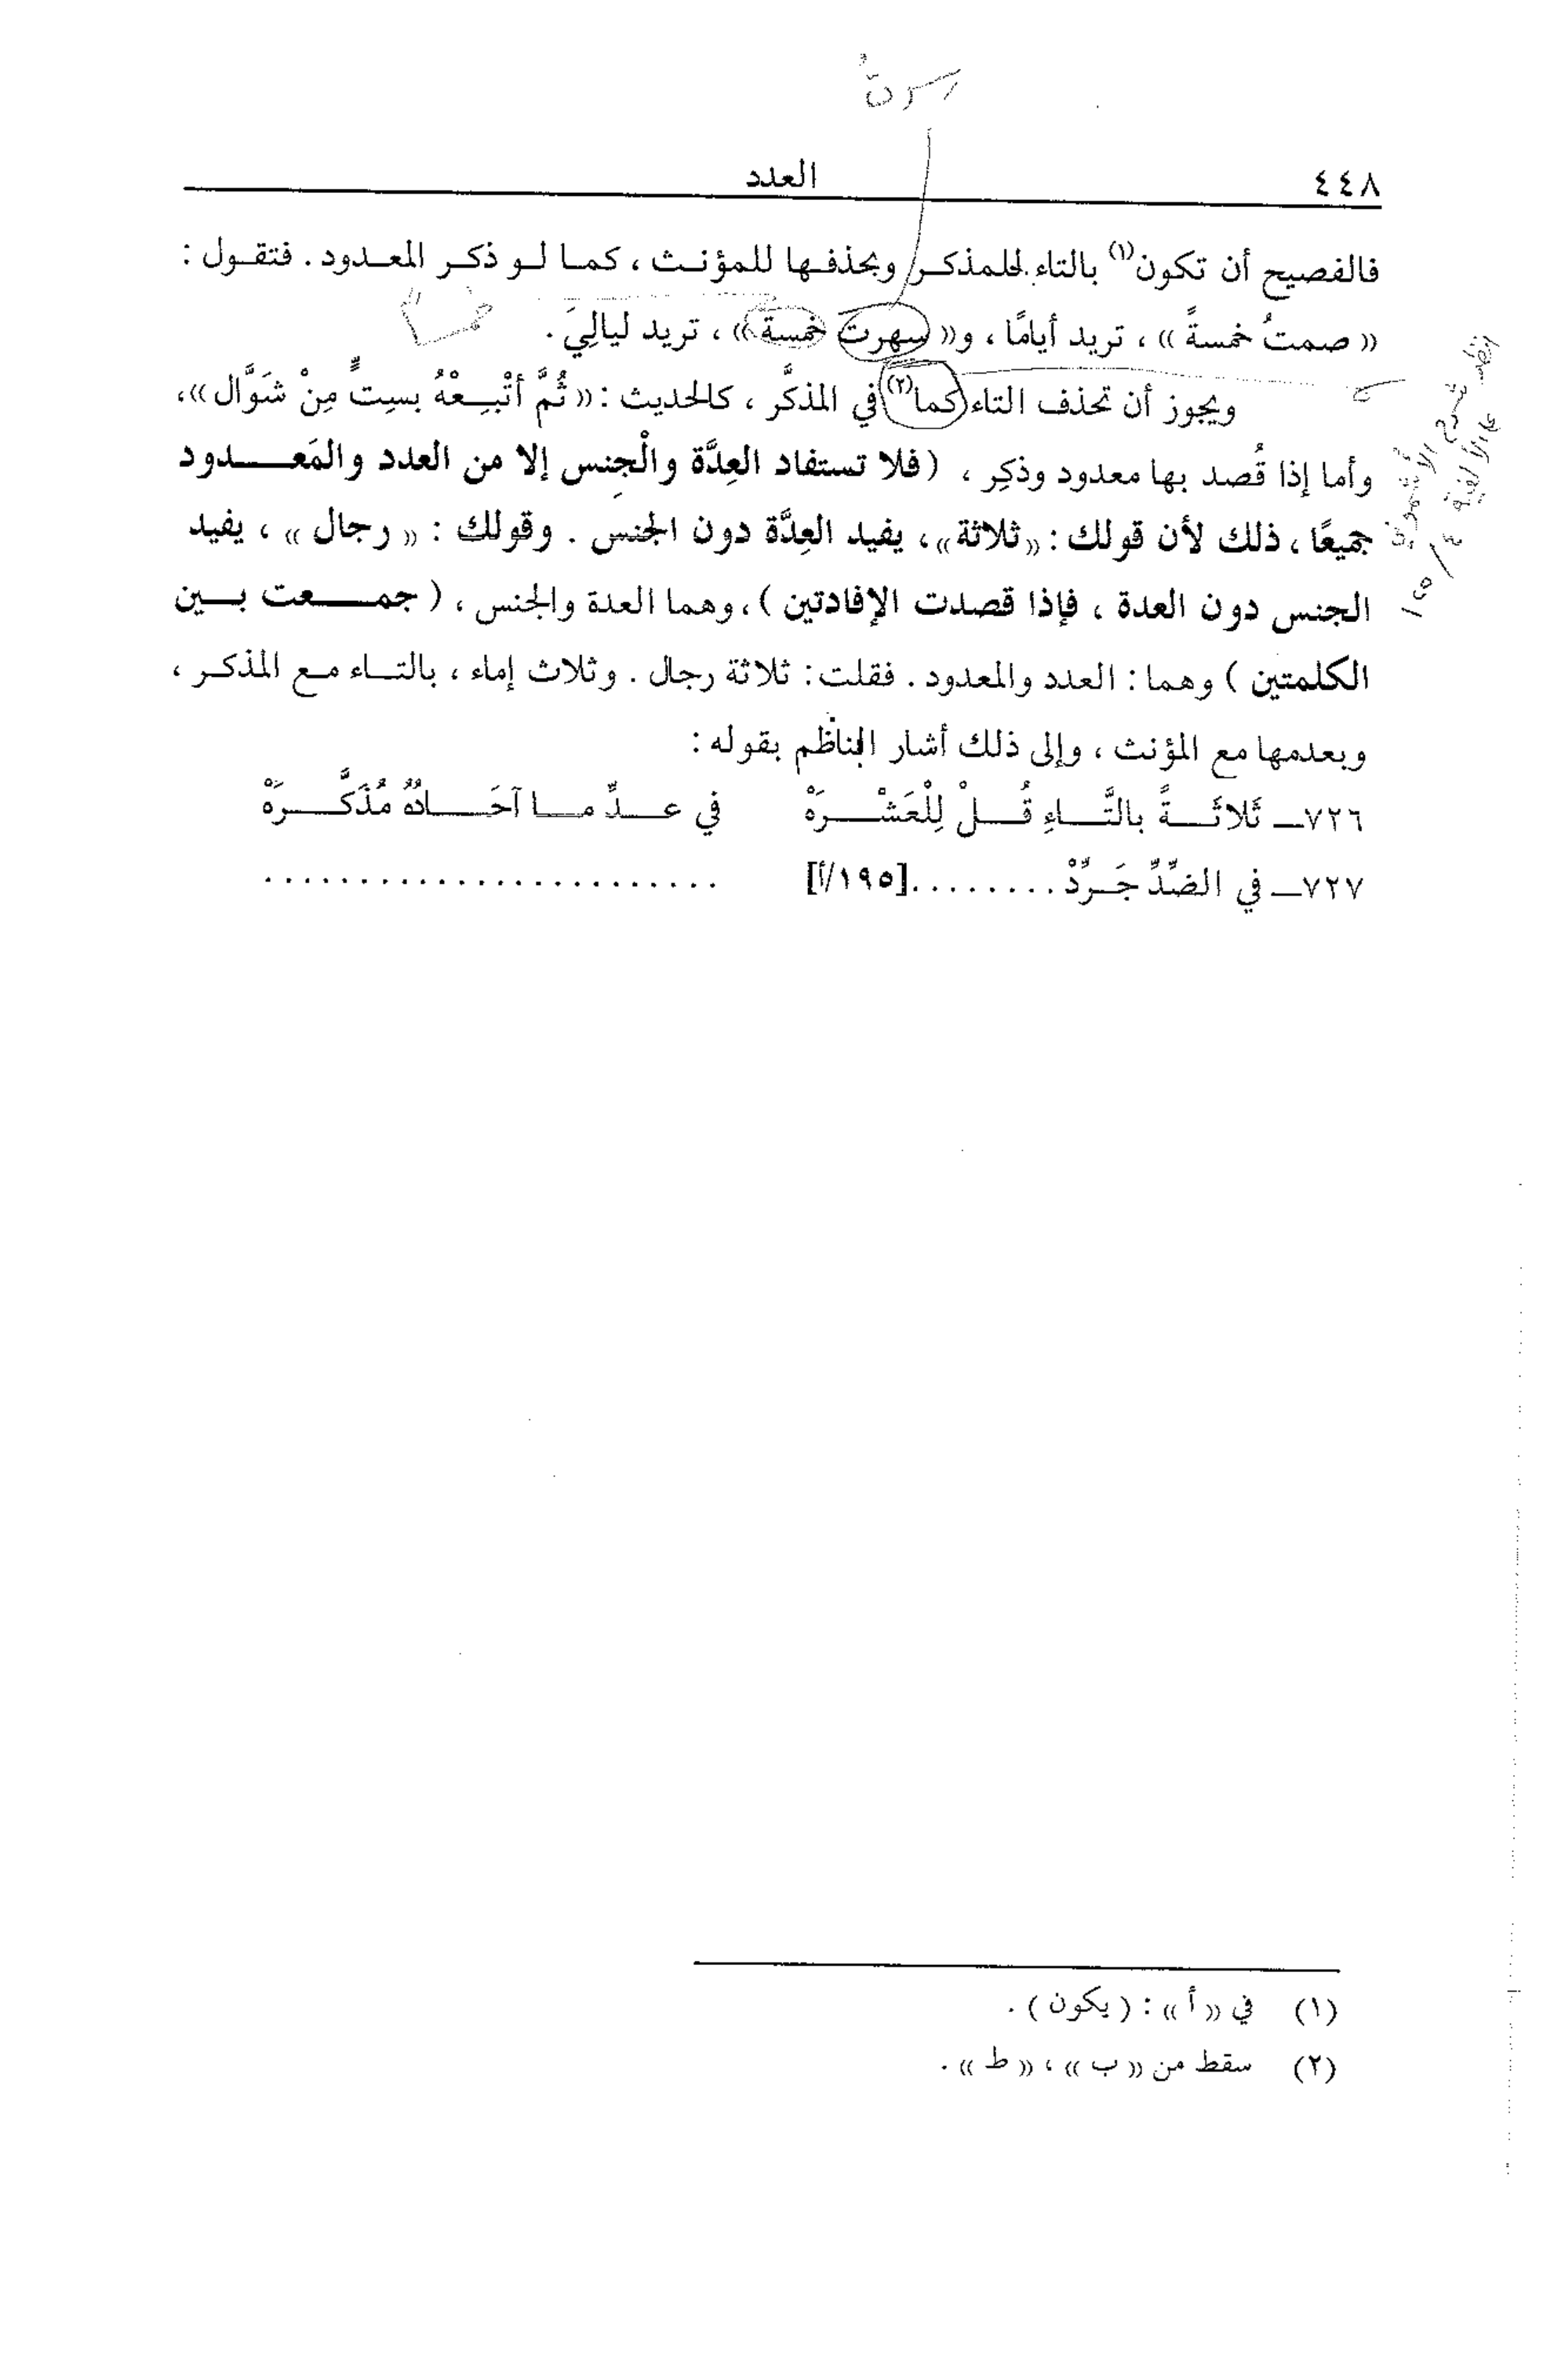 سرتُ
٤٤٨ العدد
فالفصيح أن تكون(١) بالتاء للمذكر وبحذفها للمؤنث ، كما لو ذكر المعدود . فتقول :
« صمتُ خمسةً » ، تريد أيامًا ، و« سهرت خمسة » ، تريد ليالِيَ .
خمسًا
ويجوز أن تحذف التاء كما(٢) في المذكَّر ، كالحديث : « ثُمَّ أتْبِعْهُ بسِتٍّ مِنْ شَوَّال » ،
وأما إذا قُصد بها معدود وذكِر ، ( فلا تستفاد العِدَّة والْجِنس إلا من العدد والمَعدود
جميعًا ، ذلك لأن قولك : « ثلاثة » ، يفيد العِدَّة دون الجنس . وقولك : « رجال » ، يفيد
الجنس دون العدة ، فإذا قصدت الإفادتين ) ، وهما العدة والجنس ، ( جمعت بين
الكلمتين ) وهما : العدد والمعدود . فقلت : ثلاثة رجال . وثلاث إماء ، بالتاء مع المذكر ،
وبعدمها مع المؤنث ، وإلى ذلك أشار الناظم بقوله :
٧٢٦ــ ثَلاثَةً بالتَّاءِ قُلْ لِلْعَشْرَهْ في عدِّ ما آحَادُهُ مُذَكَّرَهْ
٧٢٧ــ في الضِّدِّ جَرِّدْ ........[١٩٥/أ] ........................
انظر شرح الأشموني
على الألفية ٤/١٥٥
(١) في « أ » : ( يكون ) .
(٢) سقط من « ب » ، « ط » .